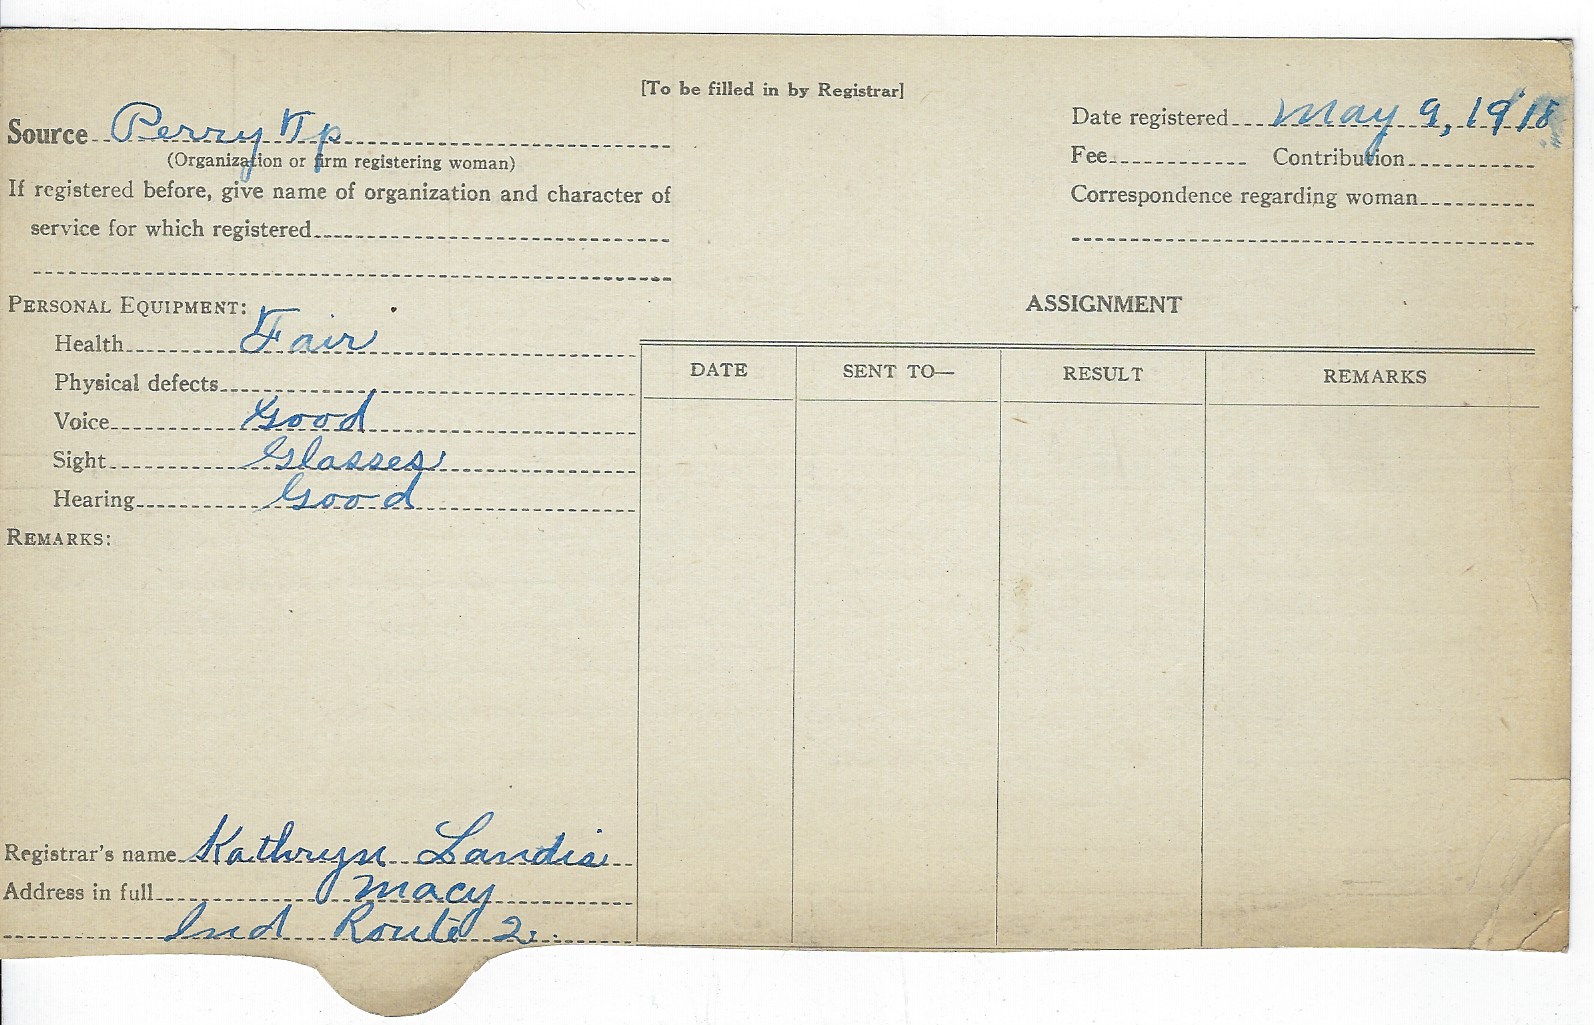 [To be filled in by Registrar]
Source Perry Tp
(Organization or firm registering woman)
If registered before, give name of organization and character of
service for which registered
Date registered May 9, 1918
Fee Contribution
Correspondence regarding woman
PERSONAL EQUIPMENT:
Health Fair
Physical defects
Voice Good
Sight Glasses
Hearing Good
REMARKS:
ASSIGNMENT
DATE SENT TO— RESULT REMARKS
Registrar's name Kathryn Landis
Address in full Macy
Ind Route 2.